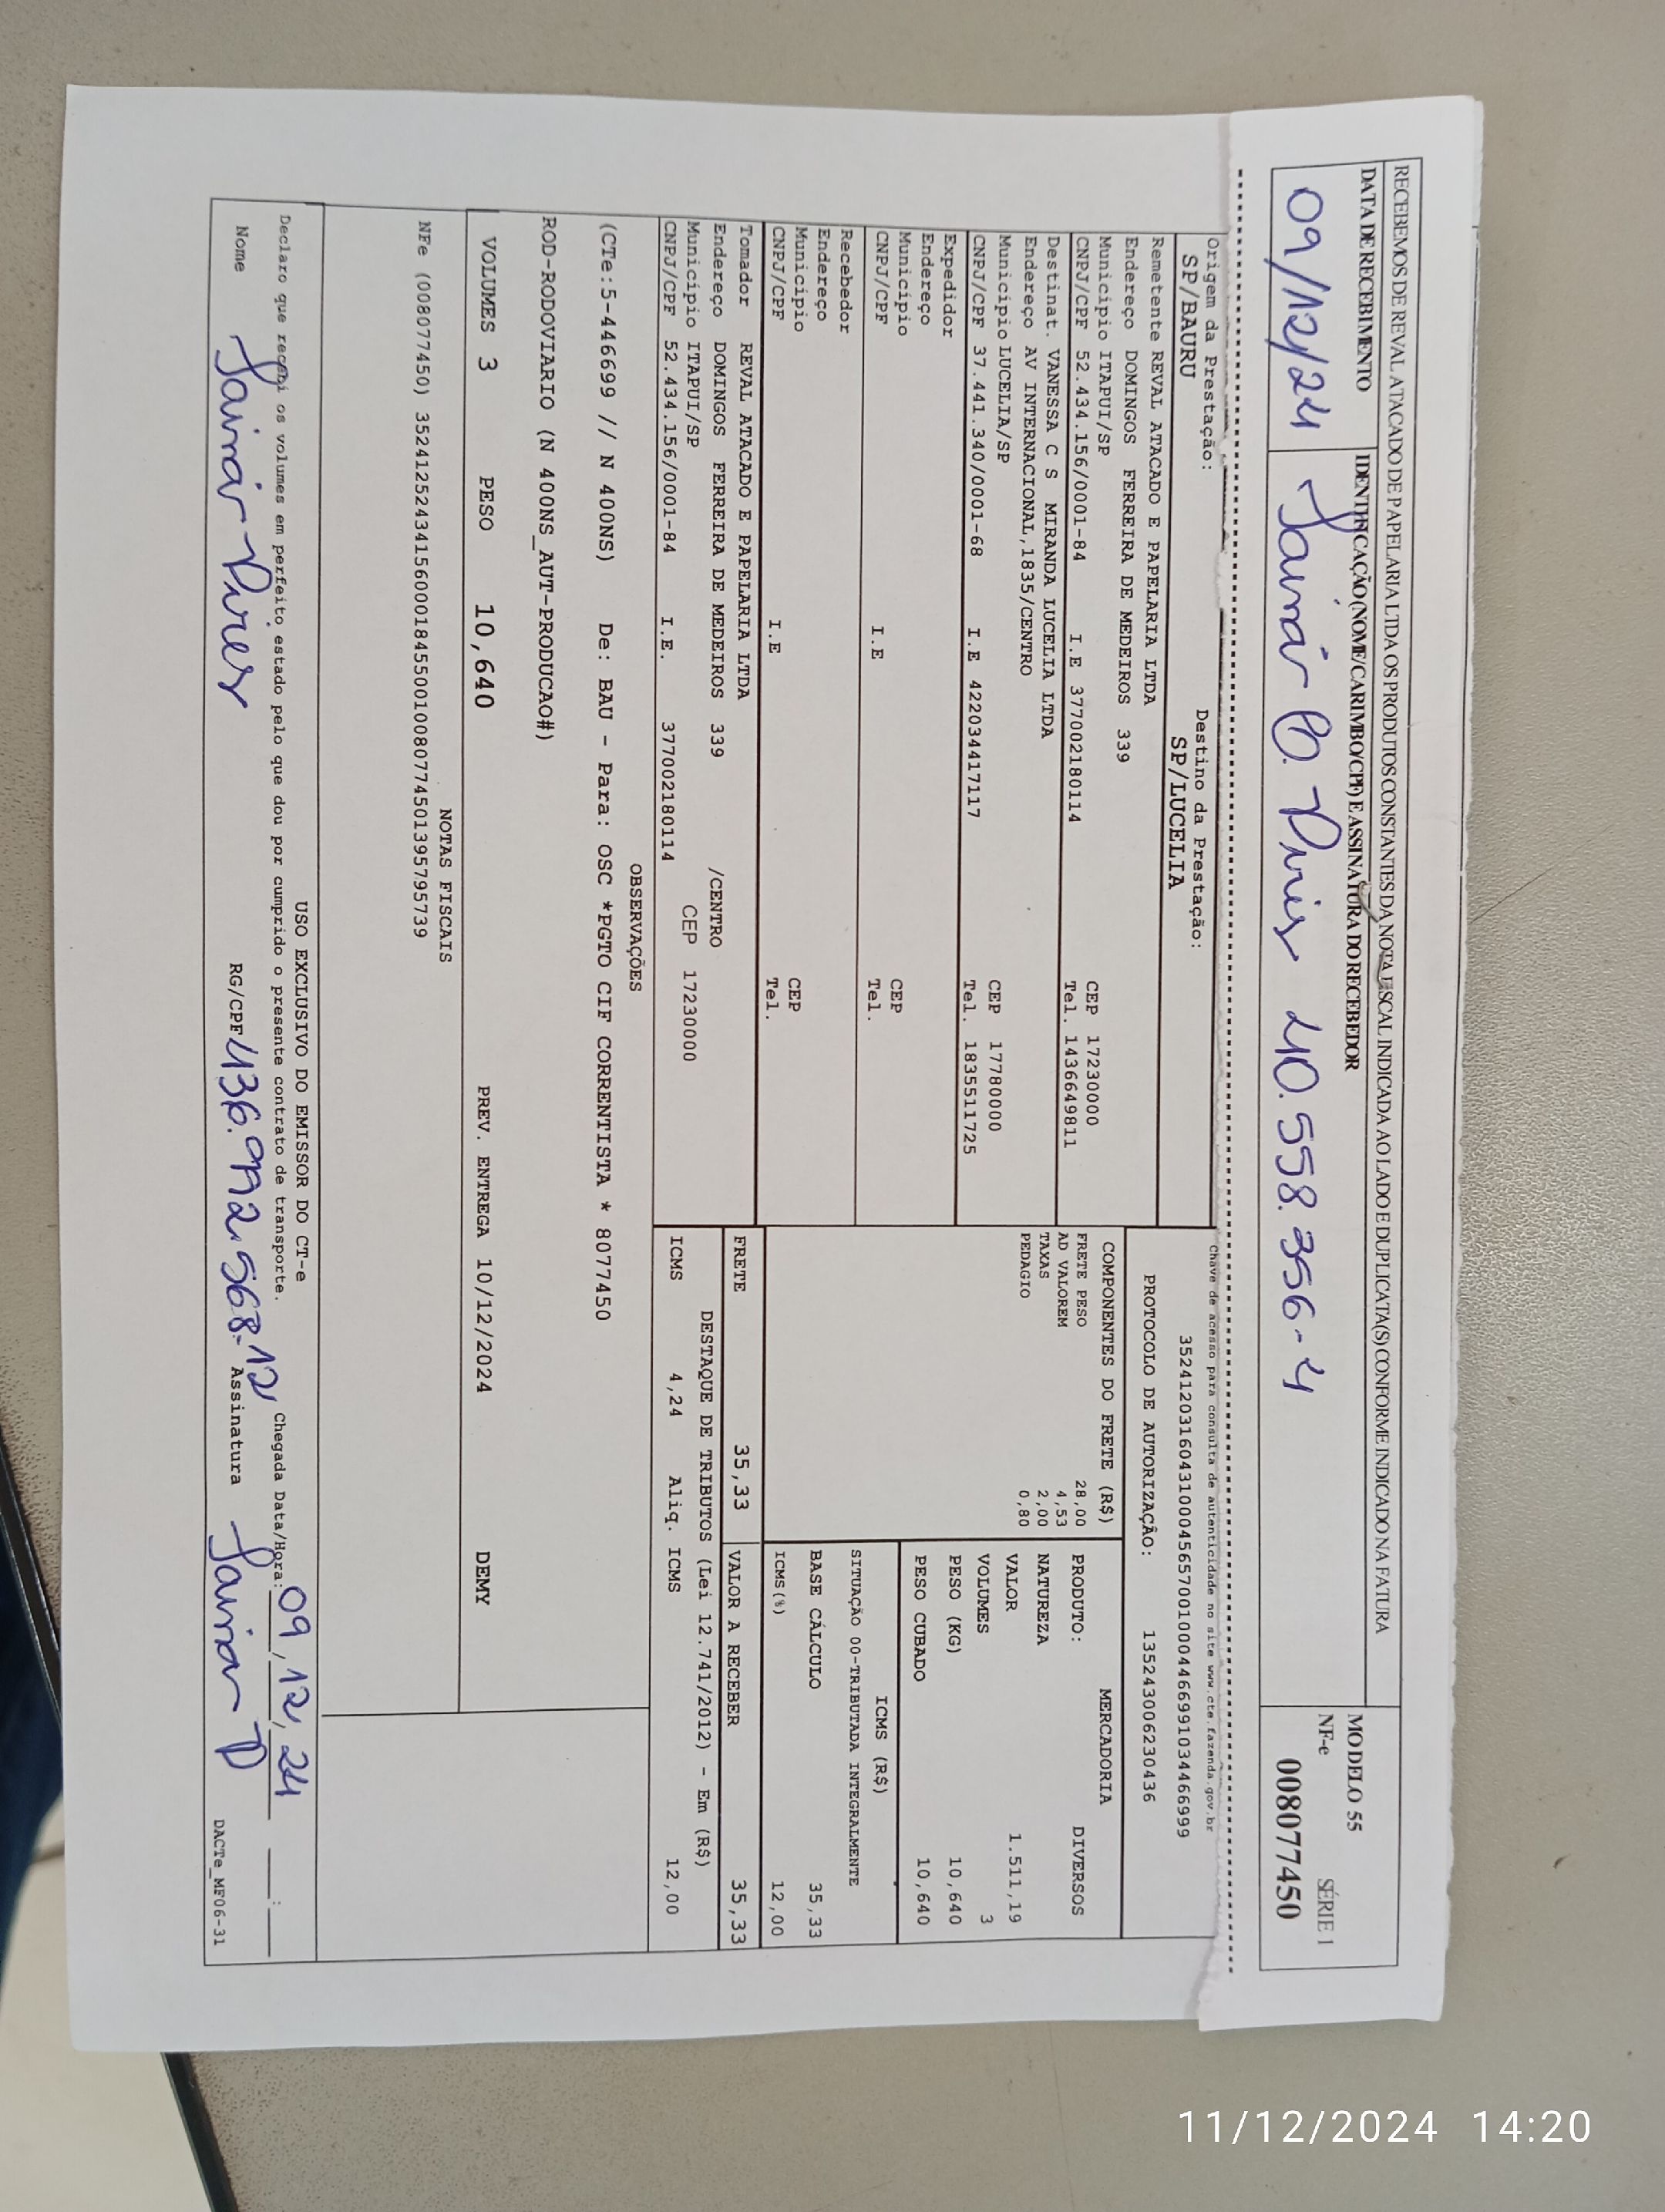 RECEBEMOS DE REVAL ATACADO DE PAPELARIA LTDA OS PRODUTOS CONSTANTES DA NOTA FISCAL INDICADA AO LADO E DUPLICATA(S) CONFORME INDICADO NA FATURA
DATA DE RECEBIMENTO IDENTIFICAÇÃO (NOME/CARIMBO/CPF) E ASSINATURA DO RECEBEDOR
MODELO 55
NF-e SÉRIE 1
008077450
09/12/24 40.558.356-4
Chave de acesso para consulta de autenticidade no site www.cte.fazenda.gov.br
Origem da Prestação: Destino da Prestação:
SP/BAURU SP/LUCELIA
35241203160431000456570010004466991034466999
PROTOCOLO DE AUTORIZAÇÃO: 135243006230436
Remetente REVAL ATACADO E PAPELARIA LTDA
Endereço DOMINGOS FERREIRA DE MEDEIROS 339
Municipio ITAPUI/SP CEP 17230000
CNPJ/CPF 52.434.156/0001-84 I.E 377002180114 Tel. 1436649811
Destinat. VANESSA C S MIRANDA LUCELIA LTDA
Endereço AV INTERNACIONAL,1835/CENTRO
Municipio LUCELIA/SP CEP 17780000
CNPJ/CPF 37.441.340/0001-68 I.E 422034417117 Tel. 1835511725
Expedidor
Endereço
Municipio CEP
CNPJ/CPF I.E Tel.
Recebedor
Endereço
Municipio CEP
CNPJ/CPF I.E Tel.
Tomador REVAL ATACADO E PAPELARIA LTDA
Endereço DOMINGOS FERREIRA DE MEDEIROS 339 /CENTRO
Município ITAPUI/SP CEP 17230000
CNPJ/CPF 52.434.156/0001-84 I.E. 377002180114
COMPONENTES DO FRETE (R$)
FRETE PESO 28,00
AD VALOREM 4,53
TAXAS 2,00
PEDAGIO 0,80
MERCADORIA
PRODUTO: DIVERSOS
NATUREZA
VALOR 1.511,19
VOLUMES 3
PESO (KG) 10,640
PESO CUBADO 10,640
ICMS (R$)
SITUAÇÃO 00-TRIBUTADA INTEGRALMENTE
BASE CÁLCULO 35,33
ICMS(%) 12,00
FRETE 35,33 VALOR A RECEBER 35,33
DESTAQUE DE TRIBUTOS (Lei 12.741/2012) - Em (R$)
ICMS 4,24 Aliq. ICMS 12,00
OBSERVAÇÕES
(CTe:5-446699 // N 400NS) De: BAU - Para: OSC *PGTO CIF CORRENTISTA * 8077450
ROD-RODOVIARIO (N 400NS_AUT-PRODUCAO#)
VOLUMES 3 PESO 10,640 PREV. ENTREGA 10/12/2024 DEMY
NOTAS FISCAIS
NFe (008077450) 35241252434156000184550010080774501395795739
USO EXCLUSIVO DO EMISSOR DO CT-e
Declaro que recebi os volumes em perfeito estado pelo que dou por cumprido o presente contrato de transporte. Chegada Data/Hora: 09/12/24 __:__
Nome RG/CPF 436.992.568-12 Assinatura
DACTe_MF06-31
11/12/2024 14:20